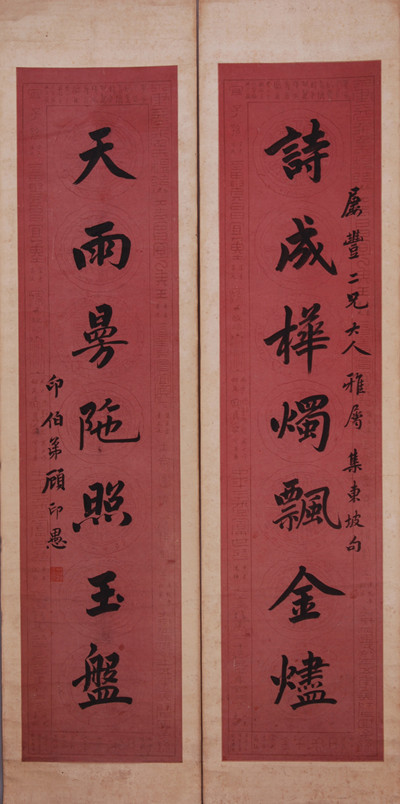 詩成樺燭飄金燼
屢豐二兄大人雅屬 集東坡句
天雨曼陁照玉盤
印伯弟顧印愚